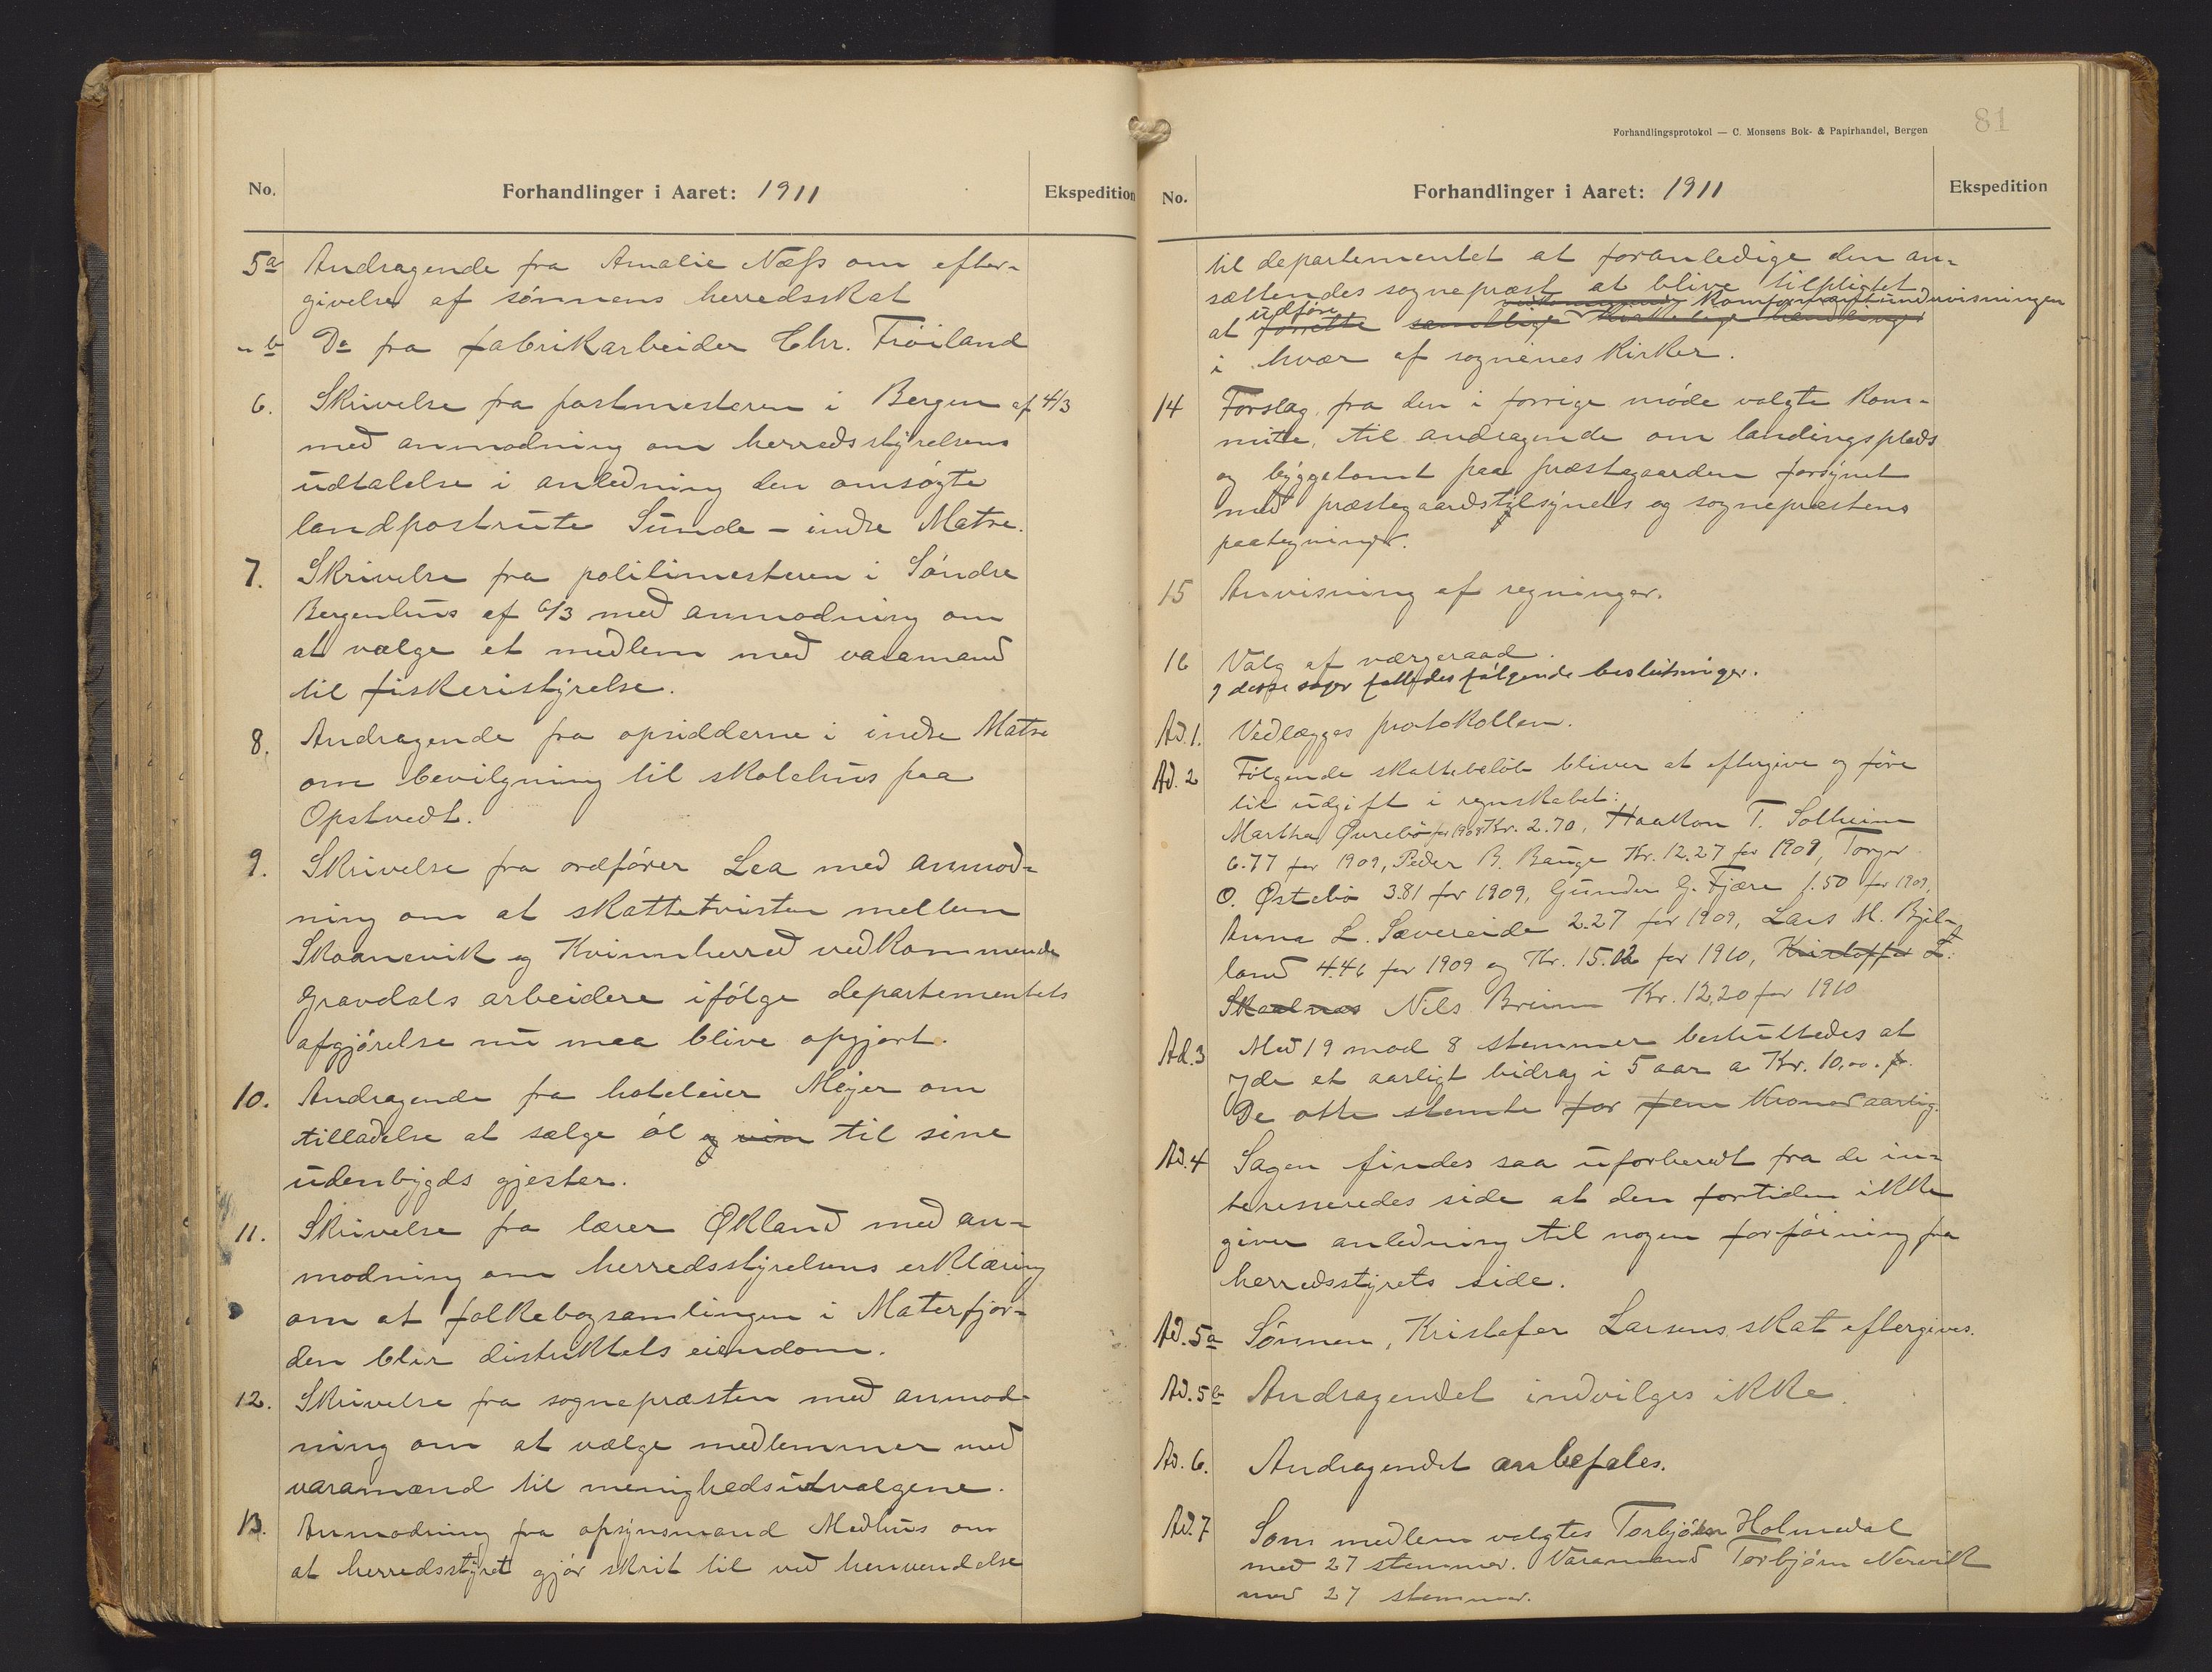 No. Forhandlinger i Aaret: 1911 Ekspedition
5a Andragende fra Amalie Næss om efter-
givelse af sønnens herredsskat
" b Do fra fabrikarbeider Chr. Trøiland
6. Skrivelse fra postmesteren i Bergen af 4/3
med anmodning om herredsstyrelsens
udtalelse i anledning den omsøgte
landpostrute Sunde - indre Matre.
7. Skrivelse fra politimesteren i Søndre
Bergenhus af 6/3 med anmodning om
at vælge et medlem med varamand
til fiskeristyrelse.
8. Andragende fra opsidderne i indre Matre
om bevilgning til skolehus paa
Opstvedt.
9. Skrivelse fra ordfører Lea med anmod-
ning om at skattetvisten mellem
Skaanevik og Kvinnherred vedkommende
Gravdals arbeidere ifølge departementets
afgjørelse nu maa blive opgjort.
10. Andragende fra hoteleier Mejer om
tilladelse at sælge øl og vin til sine
udenbygds gjester.
11. Skrivelse fra lærer Økland med an-
modning om herredsstyrelsens erklæring
om at folkebogsamlingen i Materfjor-
den blir distriktets eiendom.
12. Skrivelse fra sognepræsten med anmod-
ning om at vælge medlemmer med
varamænd til menighedsudvalgene.
13. Anmodning fra opsynsmand Medhus om
at herredsstyret gjør skrit til ved henvendelse
81
Forhandlingsprotokol — C. Monsens Bok- & Papirhandel, Bergen
No. Forhandlinger i Aaret: 1911 Ekspedition
til departementet at foranledige den an-
sættendes sognepræst at blive tilpligtet
vedkommende Konfirmantundervisningen
udføre
at forrette samtlige kirkelige handlinger
i hvær af sognenes kirker.
14 Forslag fra den i forrige møde valgte kom-
mite, til andragende om landingsplads
og byggetomt paa præstegaarden forsynet
med præstegaardstilsynets og sognepræstens
paategninger.
15 Anvisning af regninger.
16 Valg af værgeraad.
I disse sager fattedes følgende beslutninger.
Ad. 1. Vedlægges protokollen.
Ad. 2 Følgende skattebeløb bliver at eftergive og føre
til udgift i regnskabet:
Martha Øvrebø for 1909 Kr. 2.70, Haakon T. Solheim
6.77 for 1909, Peder B. Bauge Kr. 12.27 for 1909, Torger
O. Østebø 3.81 for 1909, Gunder G. Fjære 1.50 for 1909,
Anna L. Sævereide 2.27 for 1909, Lars M. Bjel-
land 4.46 for 1909 og Kr. 15.12 for 1910, Kristoffer L.
Skaalnes Nils Breim Kr. 12,20 for 1910
Ad. 3 Med 19 mod 8 stemmer besluttedes at
yde et aarligt bidrag i 5 aar a Kr. 10,00.
De otte stemte for fem Kroner aarlig.
Ad. 4 Sagen findes saa uforberedt fra de in-
teresseredes side at den fortiden ikke
giver anledning til nogen forføining fra
herredsstyrets side.
Ad. 5a Sønnen, Kristofer Larsens skat eftergives.
Ad. 5b Andragendet indvilges ikke.
Ad. 6. Andragendet anbefales.
Ad. 7 Som medlem valgtes Torbjørn Holmedal
med 27 stemmer. Varamand Torbjørn Nervik
med 27 stemmer.